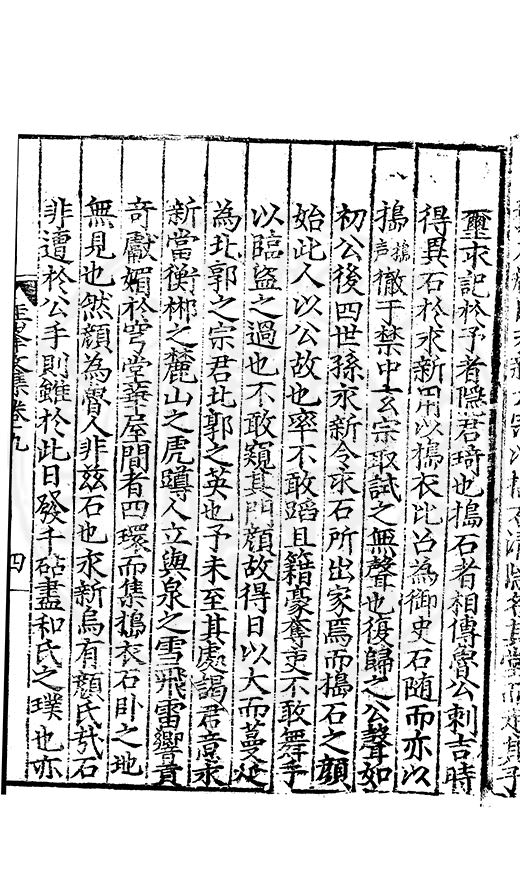 璽求記於予者隱君琦也搗石者相傳魯公刺吉時
得異石於永新用以搗衣比召為御史石随而亦以
搗搗声徹于禁中玄宗取試之無聲也復歸之公聲如
初公後四世孫永新令求石所出家焉而搗石之顔
始此人以公故也率不敢蹈且籍豪奪吏不敢舞手
以臨盜之過也不敢窺其門顔故得日以大而蔓延
為北郭之宗君北郭之英也予未至其處謁君意永
新當衡郴之麓山之虎蹲人立與泉之雪飛雷響貢
奇獻媚於穹堂華屋間者四環而集搗衣石卧之地
無見也然顔為魯人非兹石也永新烏有顔氏㢤石
非遭於公手則雖於此日發千砧盡和氏之璞也亦
文集卷之九
四